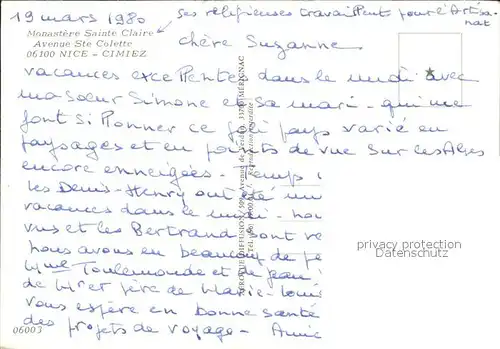 19 mars 1980
ses religieuses travaillent pour l'Artisa-
nat
Monastère Sainte Claire
Avenue Ste Colette
06100 NICE - CIMIEZ
Chère Suzanne
vacances excellentes dans le midi avec
ma soeur Simone et sa mari - qui me
font sillonner ce joli pays varié en
paysages et en points de vue sur les Alpes
encore enneigées -
les Denis-Henry ont été un
vacances dans le midi -
vus et les Bertrand sont re
nous avons eu beaucoup de pe
Mme Toulemonde et de Jean
de Mr et père de Marie-Loui
vous espère en bonne santé
des projets de voyage - Amic
06003
privacy protection
Datenschutz